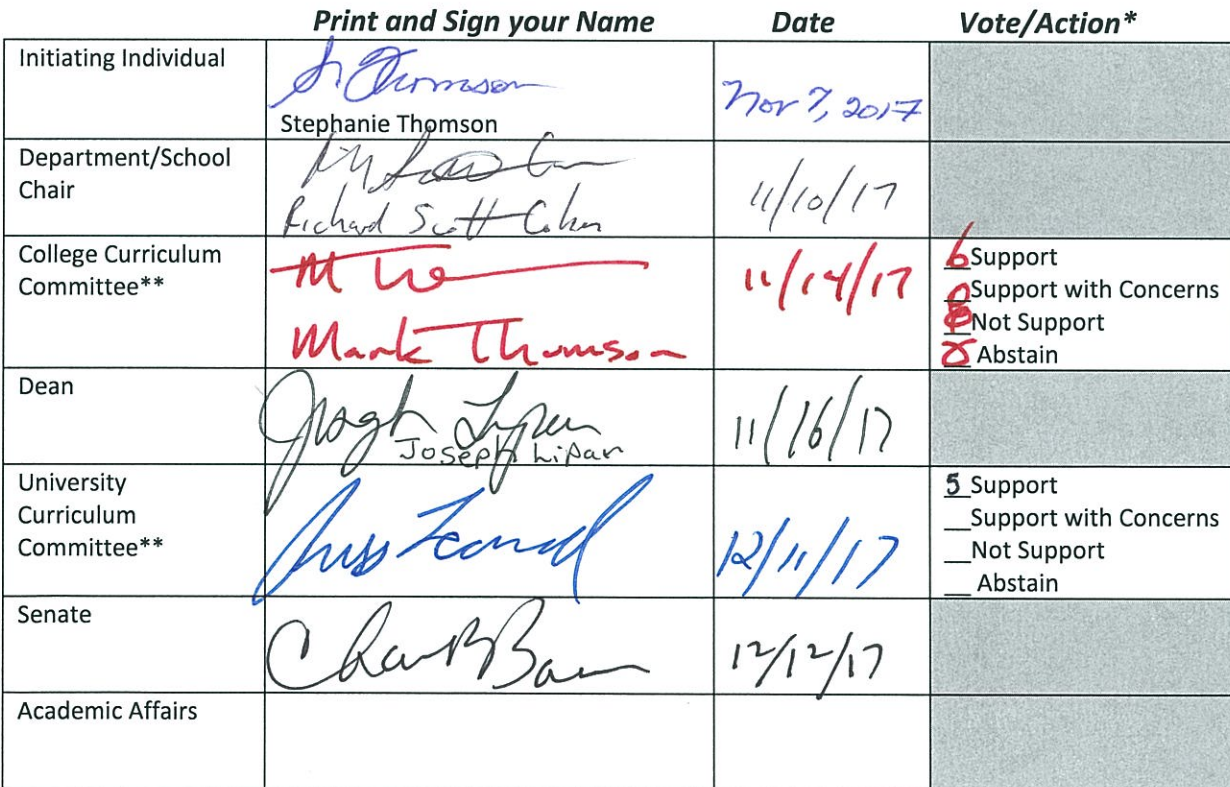 Print and Sign your Name Date Vote/Action*
Initiating Individual
S. Thomson
Nov 7, 2017
Stephanie Thomson
Department/School
Chair
11/10/17
Richard Scott Cohen
College Curriculum
Committee**
11/14/17
Mark Thomson
6 Support
0 Support with Concerns
0 Not Support
0 Abstain
Dean
Joseph Lipar
Joseph Lipar
11/16/17
University
Curriculum
Committee**
12/11/17
5 Support
__Support with Concerns
__Not Support
__ Abstain
Senate
12/12/17
Academic Affairs